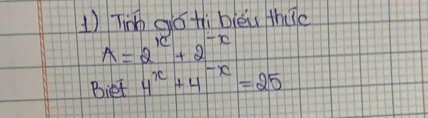 1) Tính giá trị biểu thức
A = 2^x + 2^-x
Biết 4^x + 4^-x = 25